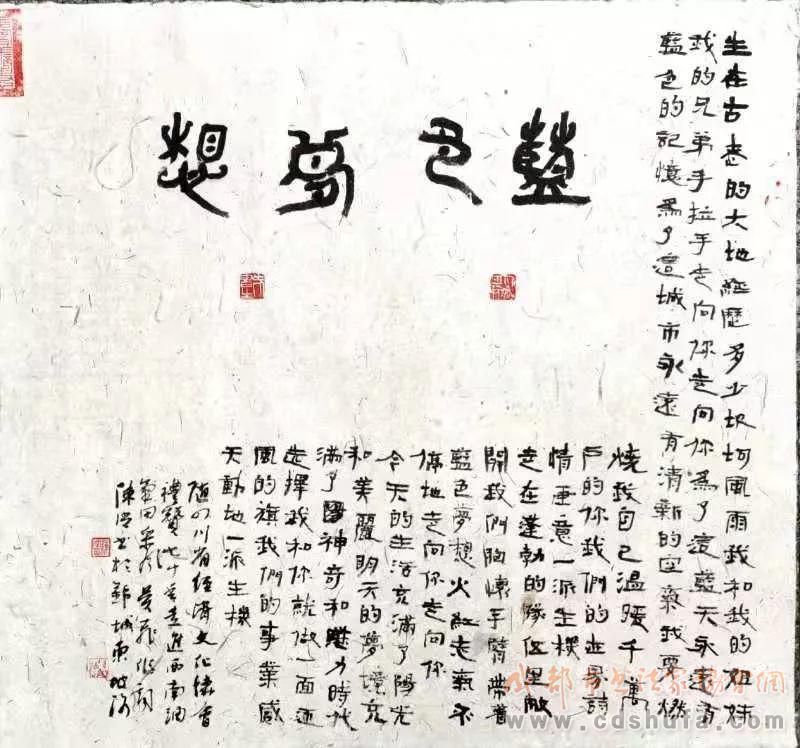 藍色夢想
生在古老的大地經歷多少坎坷風雨我和我的姐妹
我的兄弟手拉手走向你走向你為了這藍天永遠有
藍色的記憶為了這城市永遠有清新的空氣我要燃
燒我自己溫暖千萬
戶的你我們的世界詩
情画意一派生機
走在蓬勃的隊伍里敞
開我們胸懷手臂帶着
藍色夢想火紅走氣不
停地走向你走向你
今天的生活充滿了陽光
和美麗明天的夢境充
滿了神奇和魅力時代
选擇我和你就做一面迎
風的旗我們的事業感
天動地一派生機
随四川省經濟文化協會
禮贊走進西南油
氣田采
陳书於郫城東坡
成都市书法家协会网
www.cdshufa.com